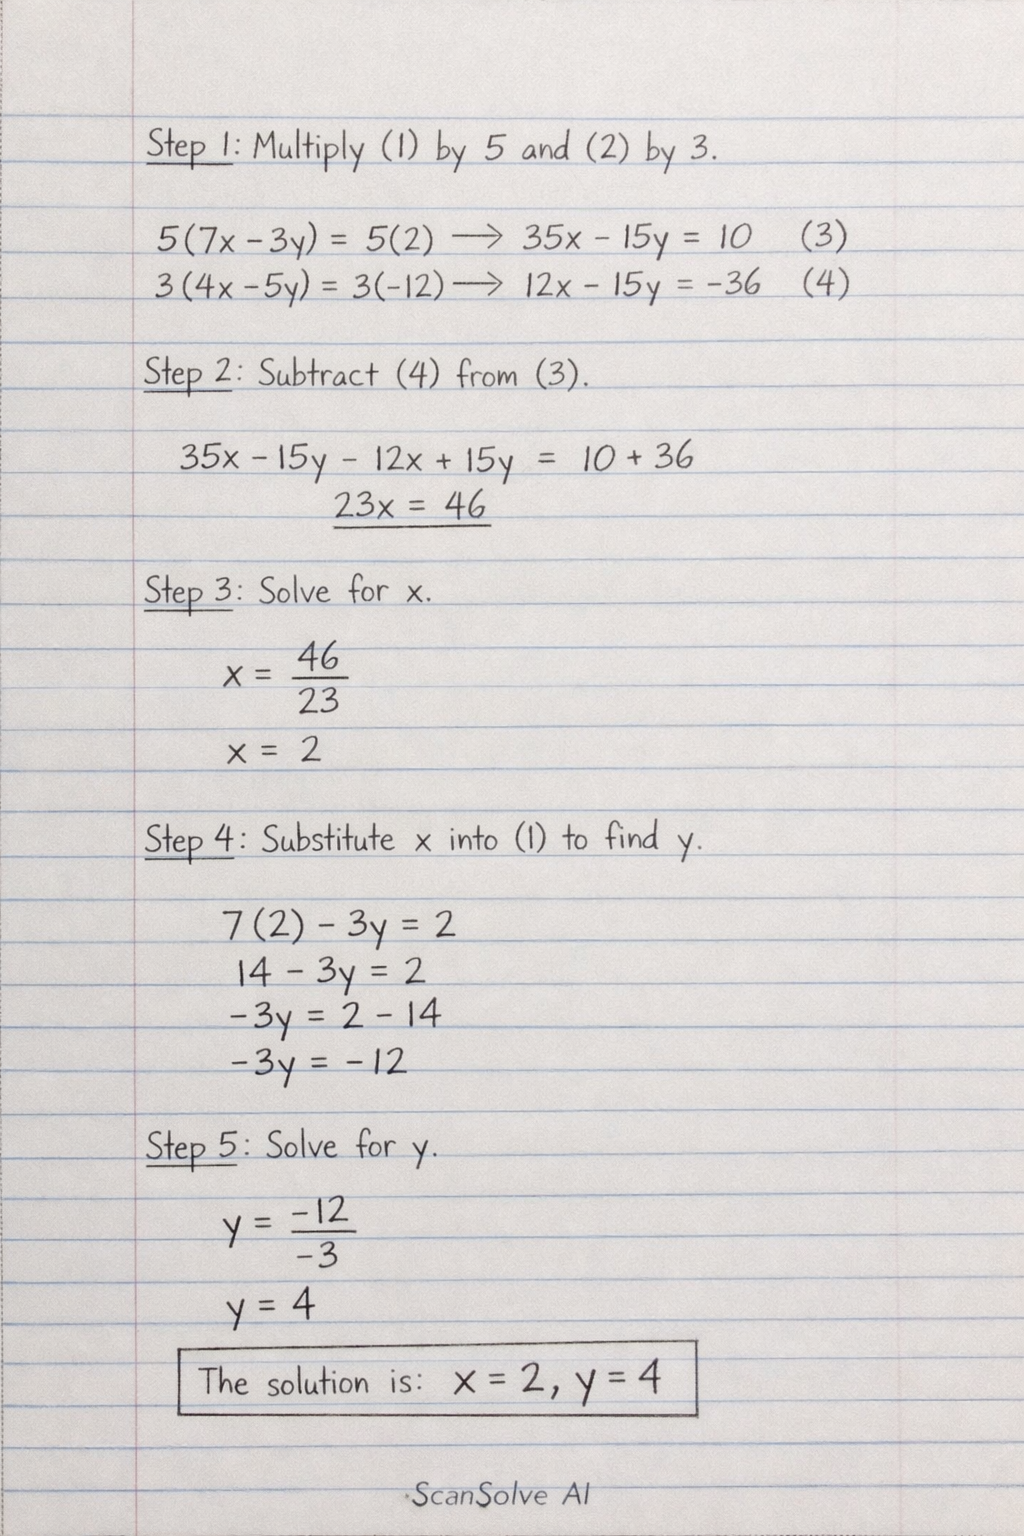 Step 1: Multiply (1) by 5 and (2) by 3.
5(7x - 3y) = 5(2) → 35x - 15y = 10 (3)
3(4x - 5y) = 3(-12) → 12x - 15y = -36 (4)
Step 2: Subtract (4) from (3).
35x - 15y - 12x + 15y = 10 + 36
23x = 46
Step 3: Solve for x.
x = 46/23
x = 2
Step 4: Substitute x into (1) to find y.
7(2) - 3y = 2
14 - 3y = 2
-3y = 2 - 14
-3y = -12
Step 5: Solve for y.
y = -12/-3
y = 4
The solution is: x = 2, y = 4
ScanSolve AI